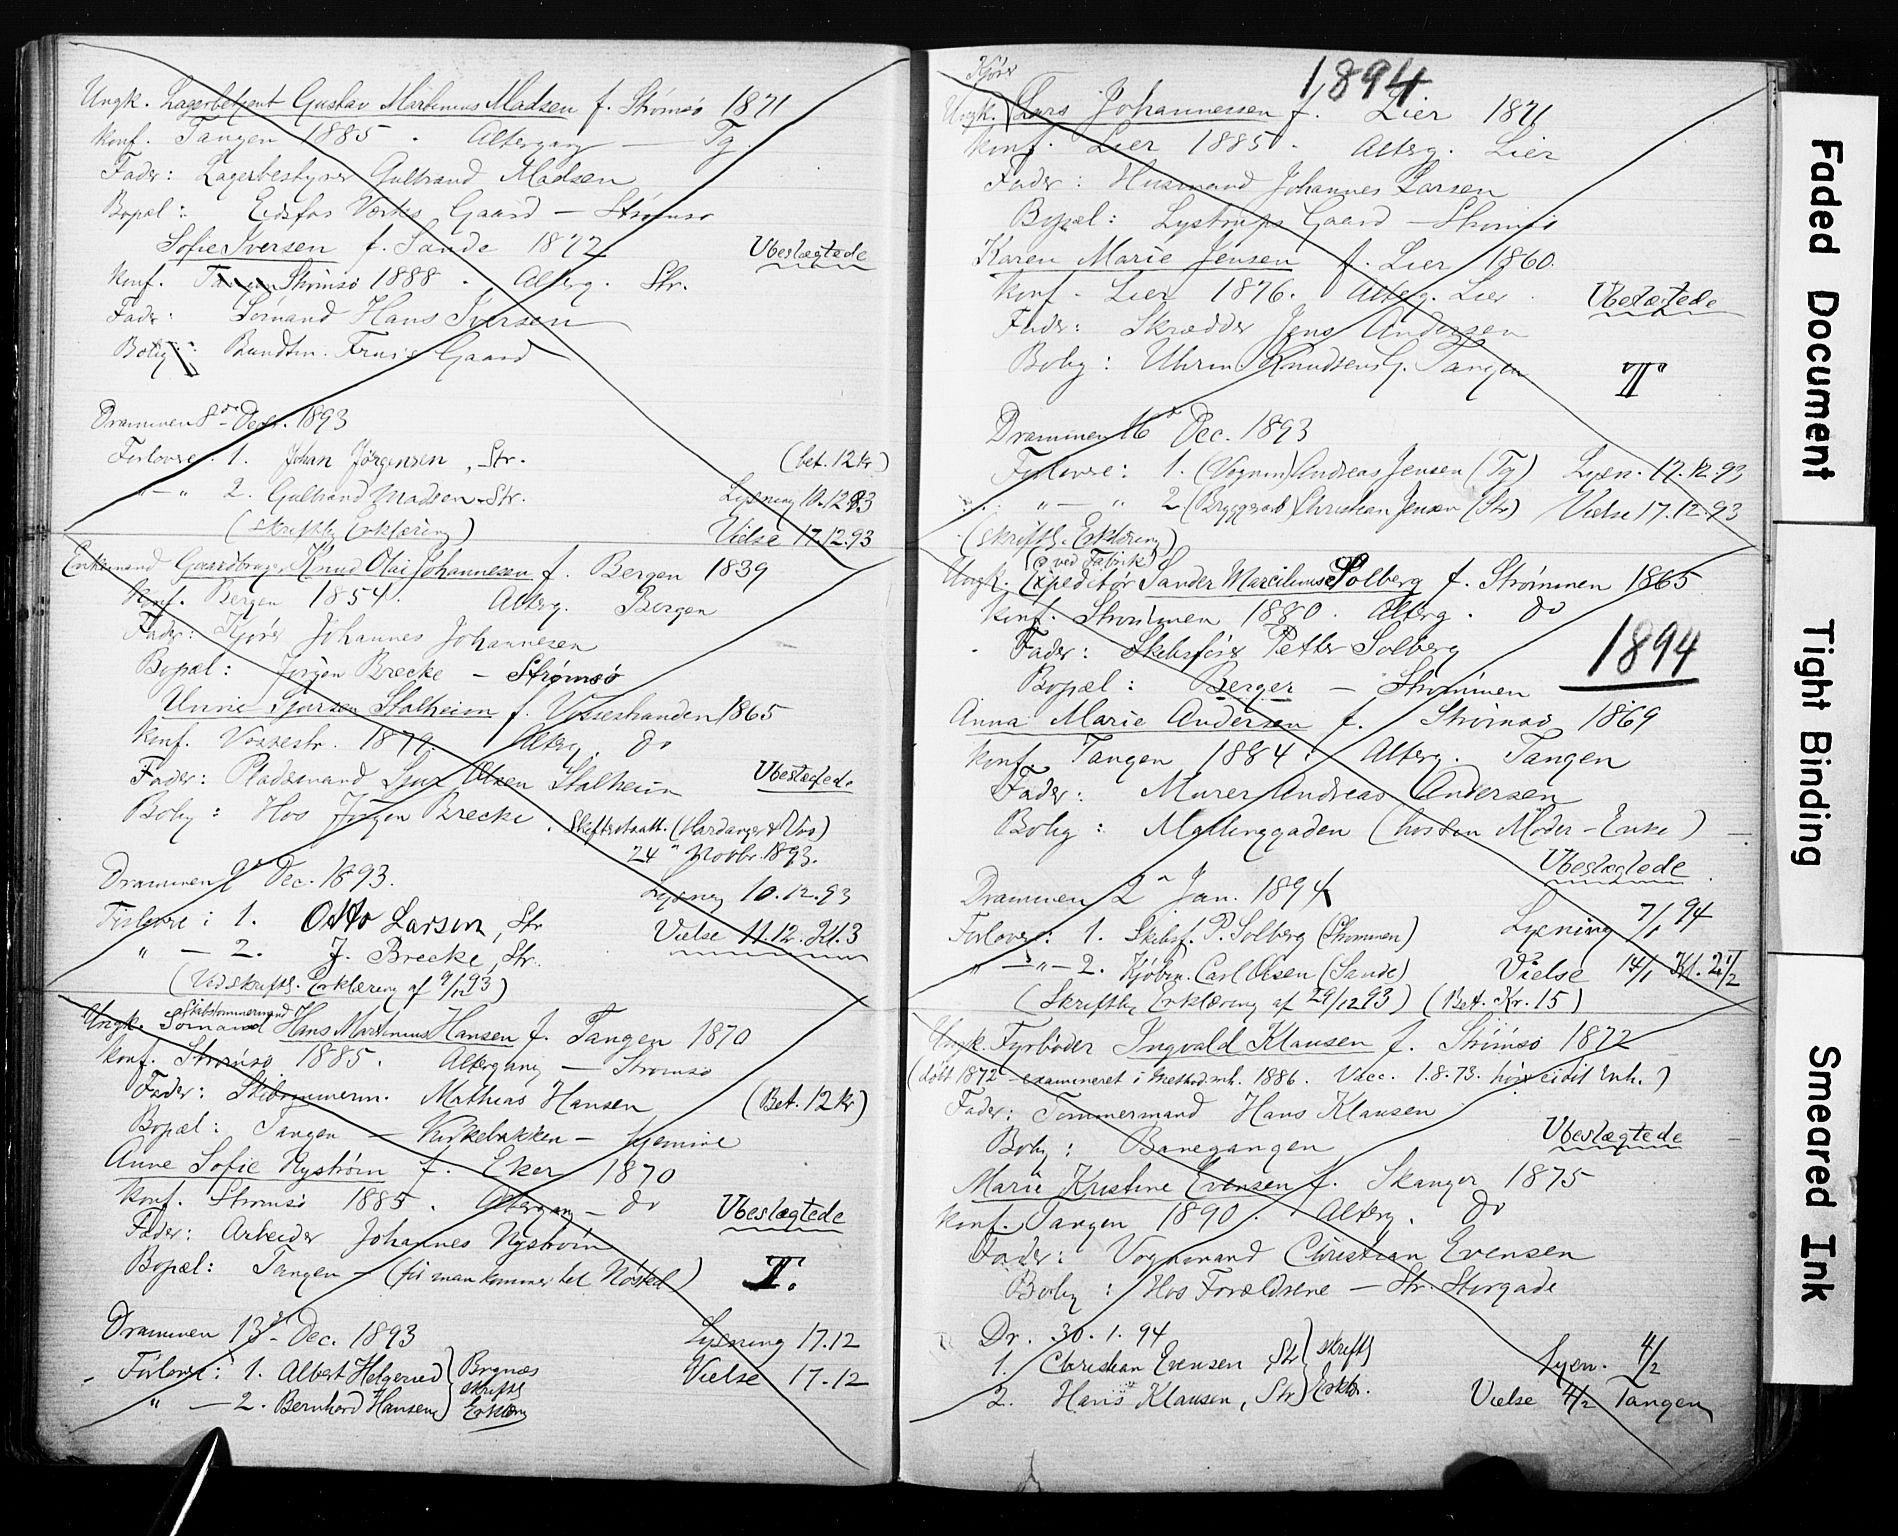 Ungk. Lagerbetjent Gustav Martinius Madsen f. Strømsø 1871
Konf. Tangen 1885. Altergang — Tg.
Fader: Lagerbestyrer Gulbrand Madsen
Bopæl: Eidsfos Værks Gaard — Strømsø
Sofie Iversen f. Sande 1872
Ubeslægtede
Konf. Strømsø 1888. Alterg. Str.
Fader: Sømand Hans Iversen
Bolig: Bundtm. Gaard
Drammen 8de Decr. 1893
Forlovere: 1. Johan Jörgensen, Str. (bet. 12 kr)
" — " 2. Gulbrand Madsen Str. Lysning 10.12.93
(Skriftlig Erklæring) Vielse 17.12.93
Enkemand Gaardbruger Knud Olai Johannesen f. Bergen 1839
Konf. Bergen 1854. Alterg. Bergen
Fader: Kjører Johannes Johannesen
Bopæl: Jörgen Brecke — Strømsø
Unnie Sjursen Stalheim f. Vossestranden 1865
Konf. Vossestr. 1879. Alterg. do
Fader: Pladsmand Sjur Olsen Stalheim
Ubeslægtede
Bolig: Hos Jörgen Brecke. Skifteattt. (Hardanger & Vos)
24 Novbr. 1893.
Drammen 9 Dec. 1893.
Lysning 10.12.93
Forlovere: 1. Otto Larsen, Str
Vielse 11.12. Kl. 3
" — 2. J. Brecke, Str.
(Ved skriftl. Erklæring af 9/12 93)
Skibstømmermand
Ungk. Sømand Hans Martinius Hansen f. Tangen 1870
Konf. Strømsø 1885. Altergang — Strømsø
Fader: Skibstømmerm. Mathias Hansen (Bet. 12 Kr)
Bopæl: Tangen — Kirkebakken — hjemme
Anne Sofie Nystrøm f. Eker 1870
Konf. Strømsø 1885. Altergang — do
Ubeslægtede
Fader: Arbeider Johannes Nystrøm
Bopæl: Tangen — (før man kommer til Nøsted)
T.
Drammen 13de Dec. 1893
Lysning 17.12
Forlovere: 1. Albert Helgerud } Brgnæs
Vielse 17.12
" — 2. Bernhard Hansen } skriftl Erklæring
1894
Kjører
Ungk. Lars Johannessen f. Lier 1871
Konf. Lier 1885. Alterg. Lier
Fader: Husmand Johannes Larsen
Bopæl: Lystrups Gaard — Strømsø
Karen Marie Jensen f. Lier 1860.
Konf. Lier 1876. Alterg. Lier
Ubeslægtede
Fader: Skrædder Jens Andersen
Bolig: Uhrm. Knudsens G. Tangen
T
Drammen 16 Dec. 1893
Forlovere: 1. (Vognm) Andreas Jensen (Tg) Lysn. 17.12.93
" — " 2. (Bryggearb) Christian Jensen (Str) Vielse 17.12.93
(Skriftl. Erklæring)
(ved Fabrik)
Ungk. Expeditör Sander Marcilius Solberg f. Strømmen 1865
Konf. Strømmen 1880. Alterg. do
Fader: Skibsfører Petter Solberg
1894
Bopæl: Berger — Strømmen
Anna Marie Andersen f. Strømsø 1869
Konf. Tangen 1884. Alterg. Tangen
Fader: Murer Andreas Andersen
Bolig: Møllergaden (hos sin Moder — Enke)
Ubeslægtede
Drammen 2 Jan. 1894
Lysning 7/1 94
Forlovere: 1. Skibsf. P. Solberg (Strømmen)
" — " — 2. Kjøbm. Carl Olsen (Sande) Vielse 14/1 Kl. 2 1/2
(Skriftlig Erklæring af 29/12 93) (Bet. Kr. 15)
Ungk. Fyrbøder Ingvald Klausen f. Strømsø 1872
(døbt 1872 — examineret i Methodmh. 1886. Vacc. 1.8.73.)
Fader: Tømmermand Hans Klausen
Bolig: Banegangen
Ubeslægtede
Marie Kristine Evensen f. Skanger 1875
Konf. Tangen 1890. Alterg. do
Fader: Vognmand Christian Evensen
Bolig: Hos Forældrene — Str. Storgade
Dr. 30.1.94
1. Christian Evensen Str } skriftl
Lysn. 4/2
2. Hans Klausen, Str } Erklær.
Vielse 4/2 Tangen
Faded Document
Tight Binding
Smeared Ink